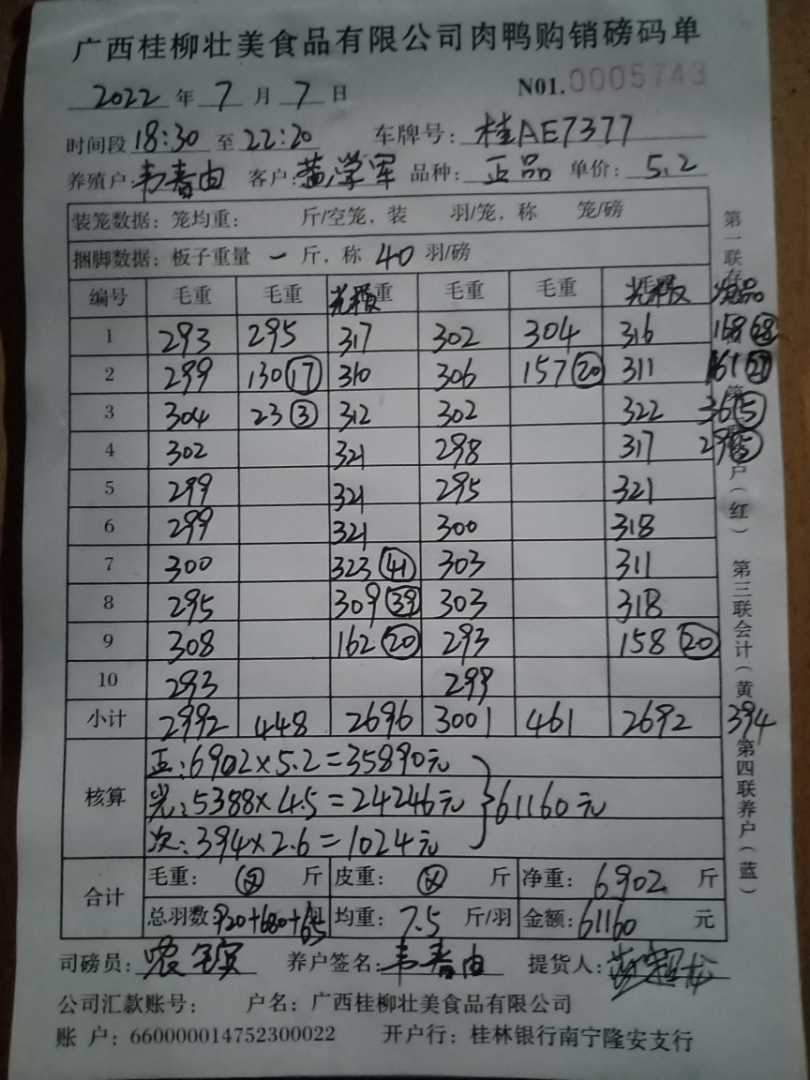 广西桂柳壮美食品有限公司肉鸭购销磅码单
2022 年 7 月 7 日 N01.0005743
时间段 18:30 至 22:20 车牌号: 桂AE7377
养殖户: 韦春由 客户: 黄学军 品种: 正品 单价: 5.2
装笼数据: 笼均重: 斤/空笼, 装 羽/笼, 称 笼/磅
捆脚数据: 板子重量 一 斤, 称 40 羽/磅
编号 毛重 毛重 重 毛重 毛重 次品
1 293 295 317 302 304 316 168 28
2 299 130 17 310 306 157 20 311 161
3 304 23 3 312 302 322 36 5
4 302 321 298 317 29 5
5 299 321 295 321
6 299 321 300 318
7 300 323 41 303 311
8 295 309 39 303 318
9 308 162 20 293 158 20
10 293 299
小计 2992 448 2696 3001 461 2692 394
核算 正:6902×5.2=35890元
光:5388×4.5=24246元 }61160元
次:394×2.6=1024元
合计 毛重: 斤 皮重: 斤 净重: 6902 斤
总羽数: 920+680+65 均重: 7.5 斤/羽 金额: 61160 元
司磅员: 养户签名: 韦春由 提货人:
公司汇款账号: 户名: 广西桂柳壮美食品有限公司
账 户: 660000014752300022 开户行: 桂林银行南宁隆安支行
第一联存
户(红)
第三联会计(黄)
第四联养户(蓝)